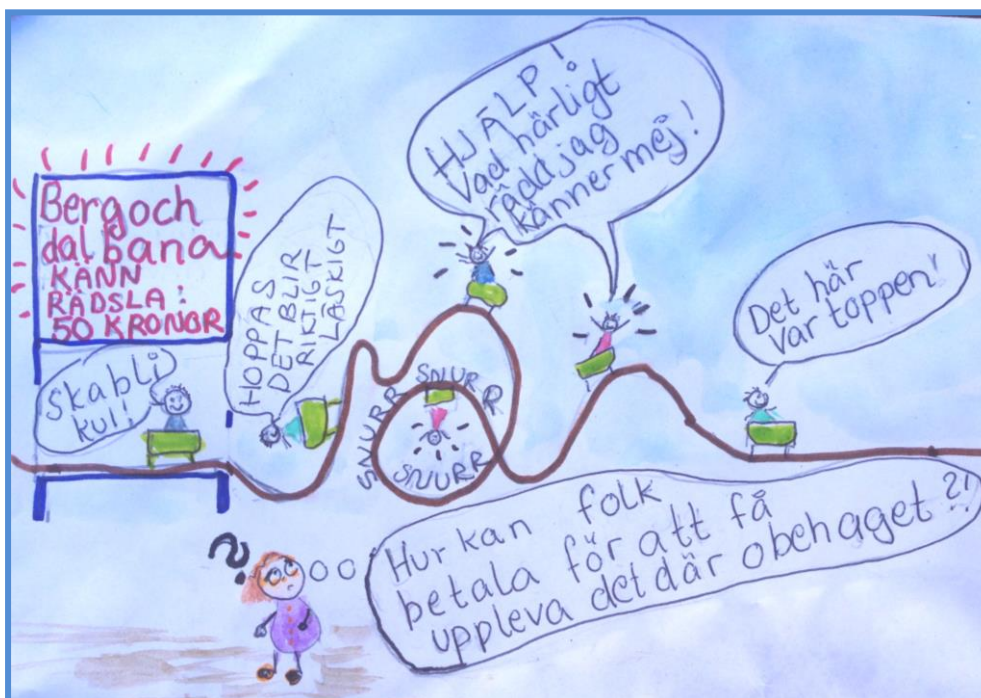 Berg och
dal bana
KÄNN
RÄDSLA:
50 KRONOR
Ska bli
kul!
HOPPAS
DET BLIR
RIKTIGT
LÄSKIGT
HJÄLP!
Vad härligt
rädd jag
känner mej!
SNURR
SNURR
SNURR
Det här
var toppen!
Hur kan folk
betala för att få
uppleva det där obehaget?!
?